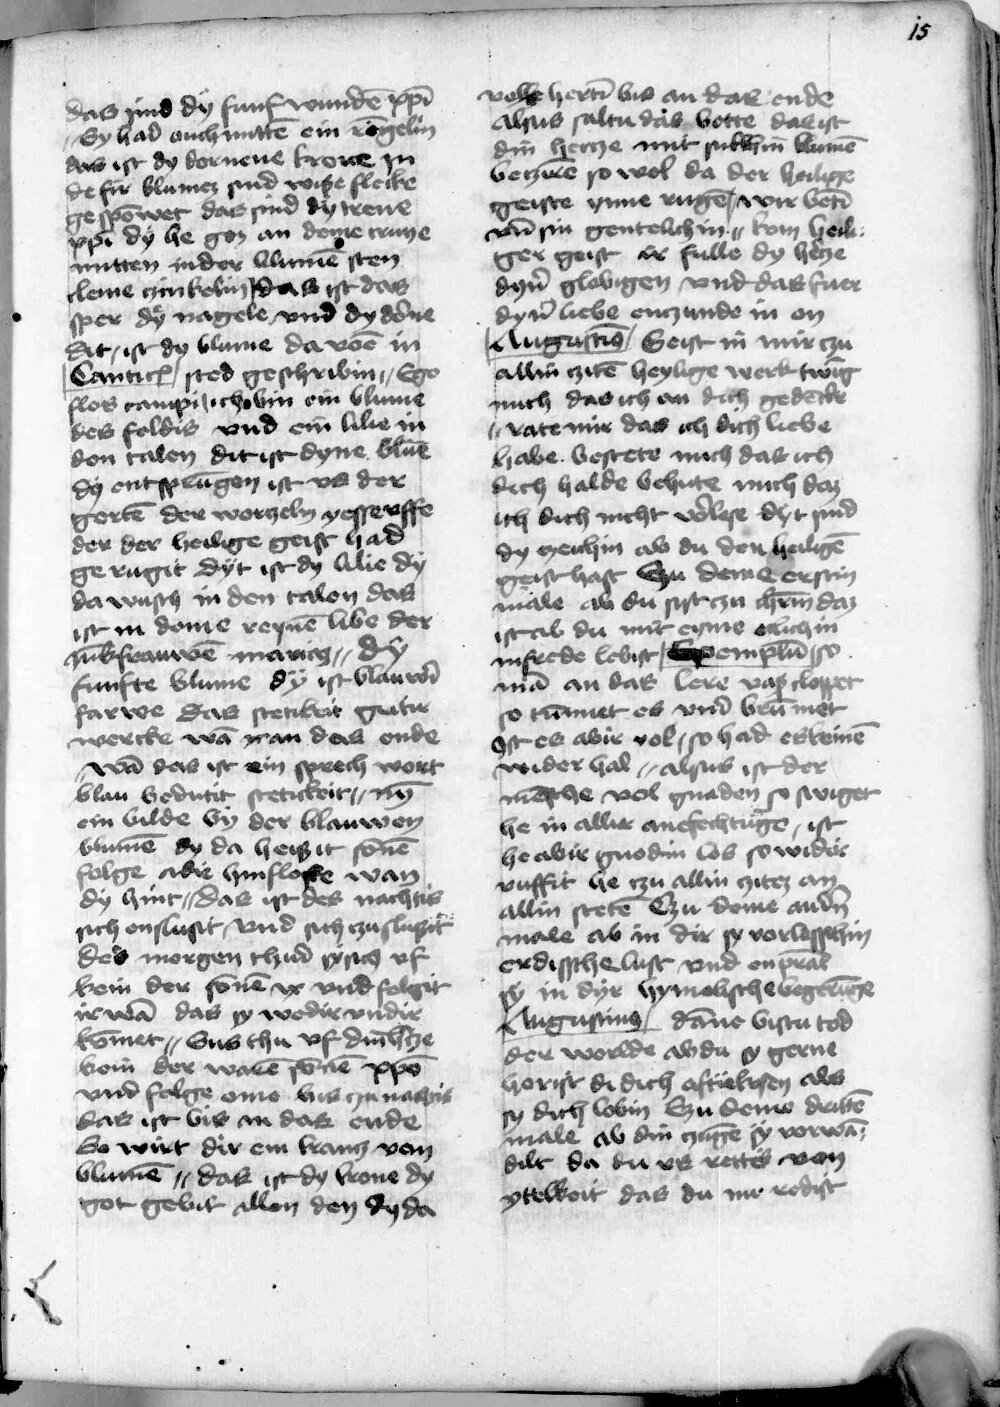 15
das sind dÿ funf wundē xp̄i
// Sy had ouch mittē ein rēgelin
das ist dy dornene krone in
de fir blumez sind wiße flecke
ge spōwet das sind dÿ trene
xp̄i dÿ he goz an deme cruze
mitten in der blumē sten
cleine czinkelin / das ist das
sper dÿ nagele vnd dy dōne
dit / ist dy blume da voē in
Cantic̄ / sted geschribin // Ego
flos campi / ich bin ein blume
des feldis vnd ein lilie in
den talen dit ist dyne blūe
dÿ entsprūgen ist vs der
gertē der worzeln yesse vffe
der der heilige geist had
ge rugit dÿt ist dy lilie dÿ
da wusch in den talen das
ist in deme reynē libe der
iūkfrauwē marien // dÿ
funfte blume dÿ ist blauwī
farwe das stetikeit gutir
wercke wā man das ende
// wā das ist ein sprech wort
blau bedutit stetickeit // nȳ
ein bilde bÿ der blauwen
blumē dy da heißit sōnē
folge adir hinflofte wan
dÿ hint // das ist des nachtis
sich onslusit / vnd sich zuslußit
des morgen thud sy sich vf
kein der sōnē vz vnd folgit
ir wā das sy wedir vndir
kōmet // Sus thu vf din h'tze
kein der warē sōnē xp̄o
vnd folge eme bis czu nachtis
das ist bis an das ende
So wirt dir ein kranz von
blumē // das ist dy krone dy
got gebit allen den dy da
volle hertī bis an das ende
Alsus saltu das bette das ist
din hercze mit sulchin blumē
beczirē so wol da der heilige
geiste ynne rugē / wir betī
vn̄ sin gentelichin // kom heili-
ger geist ir fulle dy h'cze
dyn' globigen vnd das fuer
dyn' liebe enczunde in en
Augustīs / Geist in mir czu
allin cziten heylige werk twīg
mich das ich an dich gedēcke
// rate mir das ich dich liebe
habe. bestete mich das ich
dich halde behute mich daz
ich dich nicht v'lese dÿt sind
dy zeichin ab du den heiligē
geist hast Czu deme erstin
male ab du sist czu
ist ab du mit eyme elichin
in frede lebist / Exempłū / so
mā an das lere vas cloppet
so tūmet es vnd brūmet
Ist es abir vol / so had es keinē
wider hal // alsus ist der
mēsche vol gnaden so swiget
he in allir anefechtūge / ist
he abir gnodin los so wider
ruffit he czu allin cziten an
allin stetē Czu deme andn̄
male ab in dir sy vorlisschin
erdissche lust vnd enprāt
sy in dÿr hymelische begerūge
Augustinus / dāne bistu tod
der worlde ab du sy gerne
horist di dich aftirkosen als
sy dich lobin Czu deme drittē
male ab din czūge sy vorwā-
dilt da du vs rettes von
ytelkeit das du nu redist